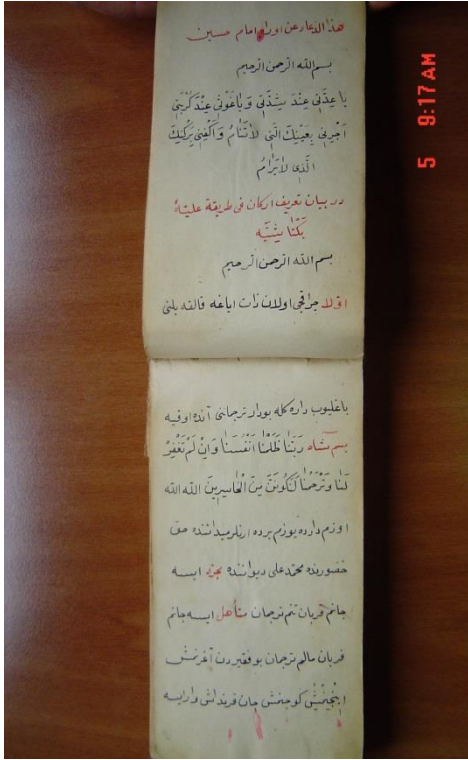 هذا الدعاء عن اوراد امام حسين
بسم الله الرحمن الرحيم
يا عِدَّتِي عِنْدَ شِدَّتِي وَيَا غَوْثِي عِنْدَ كُرْبَتِي
اُحْرُسْنِي بِعَيْنِكَ الَّتِي لَا تَنَامُ وَاكْفِنِي بِرُكْنِكَ
الَّذِي لَا يُرَامُ
در بيان تعريف اركان فى طريقة عليّۀ
بَكْتَاشِيَّه
بسم الله الرحمن الرحيم
اوّلا جراغجى اولان ذات اياغه قالقه بلنى
باغليوب داره كله بودار ترجماننى آنده اوقيه
بسم شاه رَبَّنَا ظَلَمْنَا اَنْفُسَنَا وَاِنْ لَمْ تَغْفِرْ
لَنَا وَتَرْحَمْنَا لَنَكُونَنَّ مِنَ الْخَاسِرِينَ الله الله
اوزم دارده يوزم يرده ارنلر ميداننده حق
حضورنده محمّد على ديواننده مجرّد ايسه
جانم قربان تنم ترجمان متأهل ايسه جانم
قربان مالم ترجمان بو فقيردن آغرنمش
اينجينمش كوجنمش جان قرنداش وار ايسه
5 9:17AM